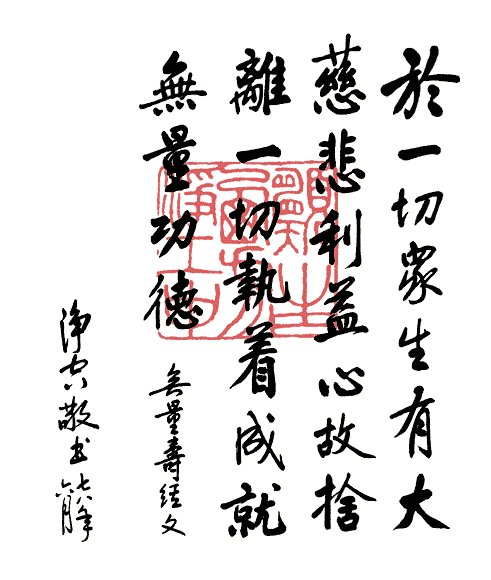 於一切眾生有大
慈悲利益心故捨
離一切執着成就
無量功德
無量壽經文
淨空敬書